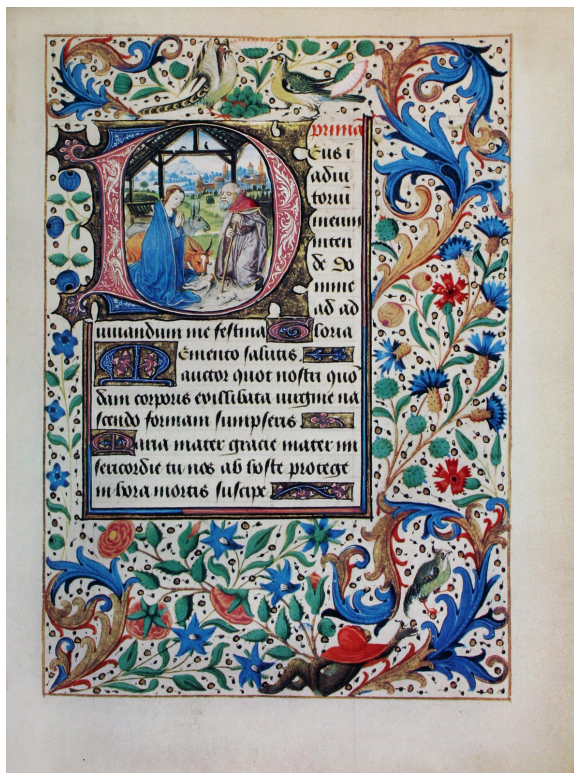 prima
Eus i
adiu
torium
meum
inten
de Do
mine
ad ad
iuuandum me festina Gloria
Memento salutis
auctor quot nostri quo
dam corporis exillibata uirgine na
scendo formam sumpseris
Maria mater gracie mater mi
sericordie tu nos ab hoste protege
in hora mortis suscipe